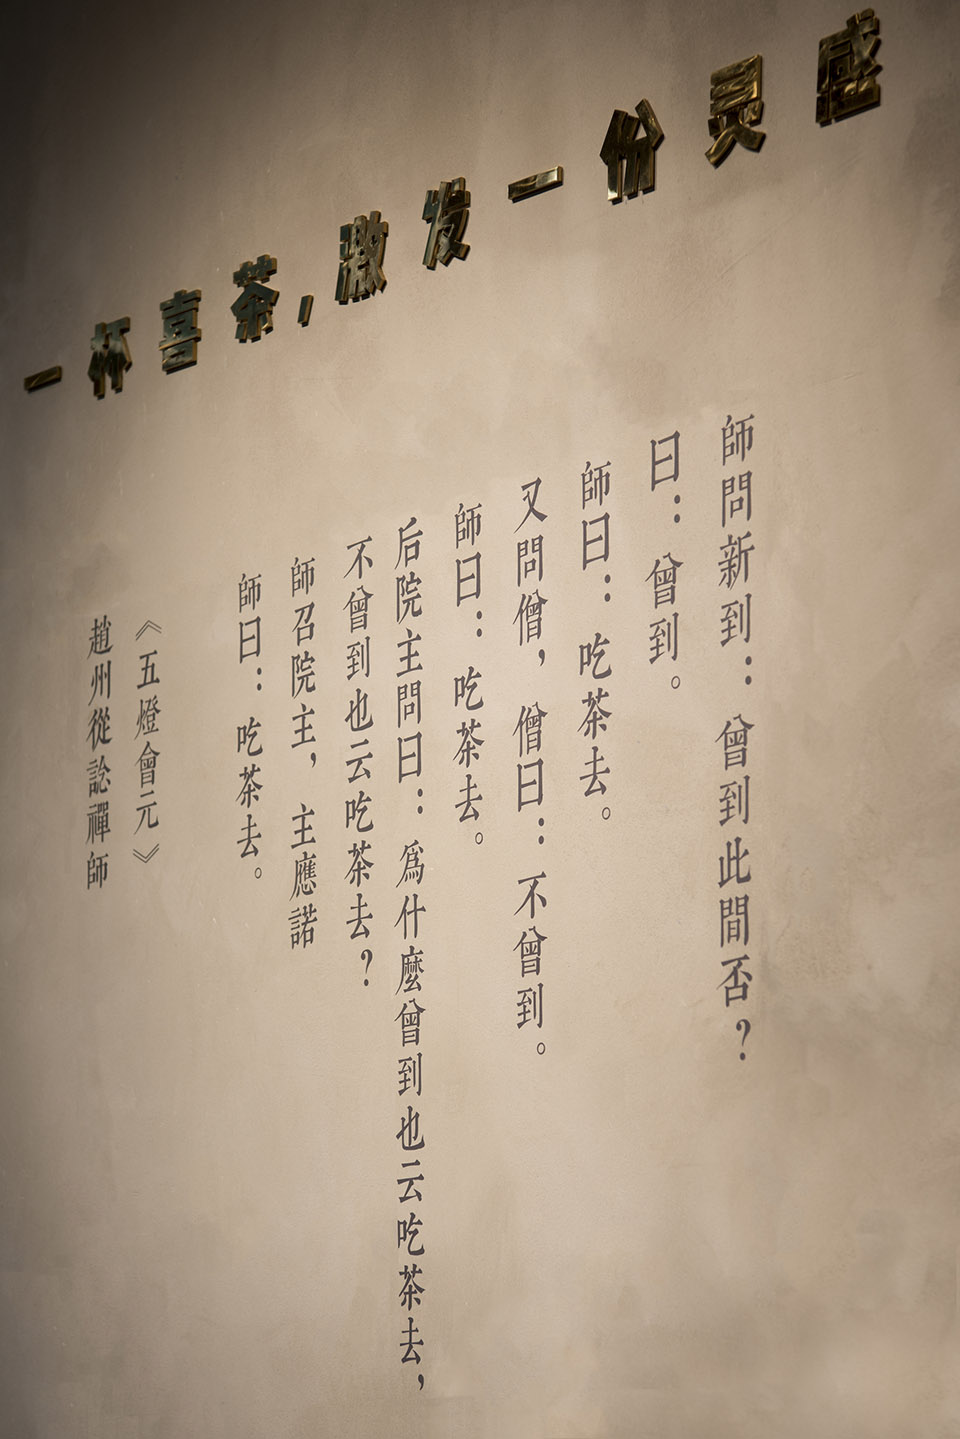 一杯喜茶,激发一份灵感
師問新到：曾到此間否？
曰：曾到。
師曰：吃茶去。
又問僧，僧曰：不曾到。
師曰：吃茶去。
后院主問曰：爲什麽曾到也云吃茶去，
不曾到也云吃茶去？
師召院主，主應諾
師曰：吃茶去。
《五燈會元》
趙州從諗禪師